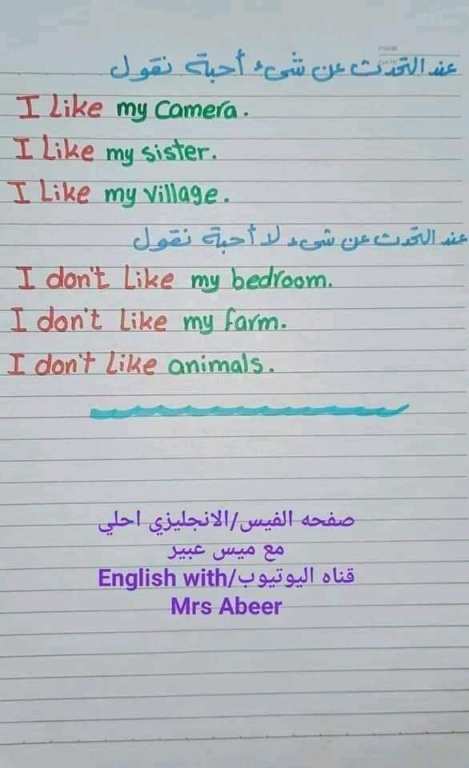 عند التحدث عن شىء أحبة نقول
I like my camera.
I like my sister.
I like my village.
عند التحدث عن شىء لا أحبة نقول
I don't like my bedroom.
I don't like my farm.
I don't like animals.
صفحه الفيس/الانجليزي احلي
مع ميس عبير
قناه اليوتيوب/English with
Mrs Abeer